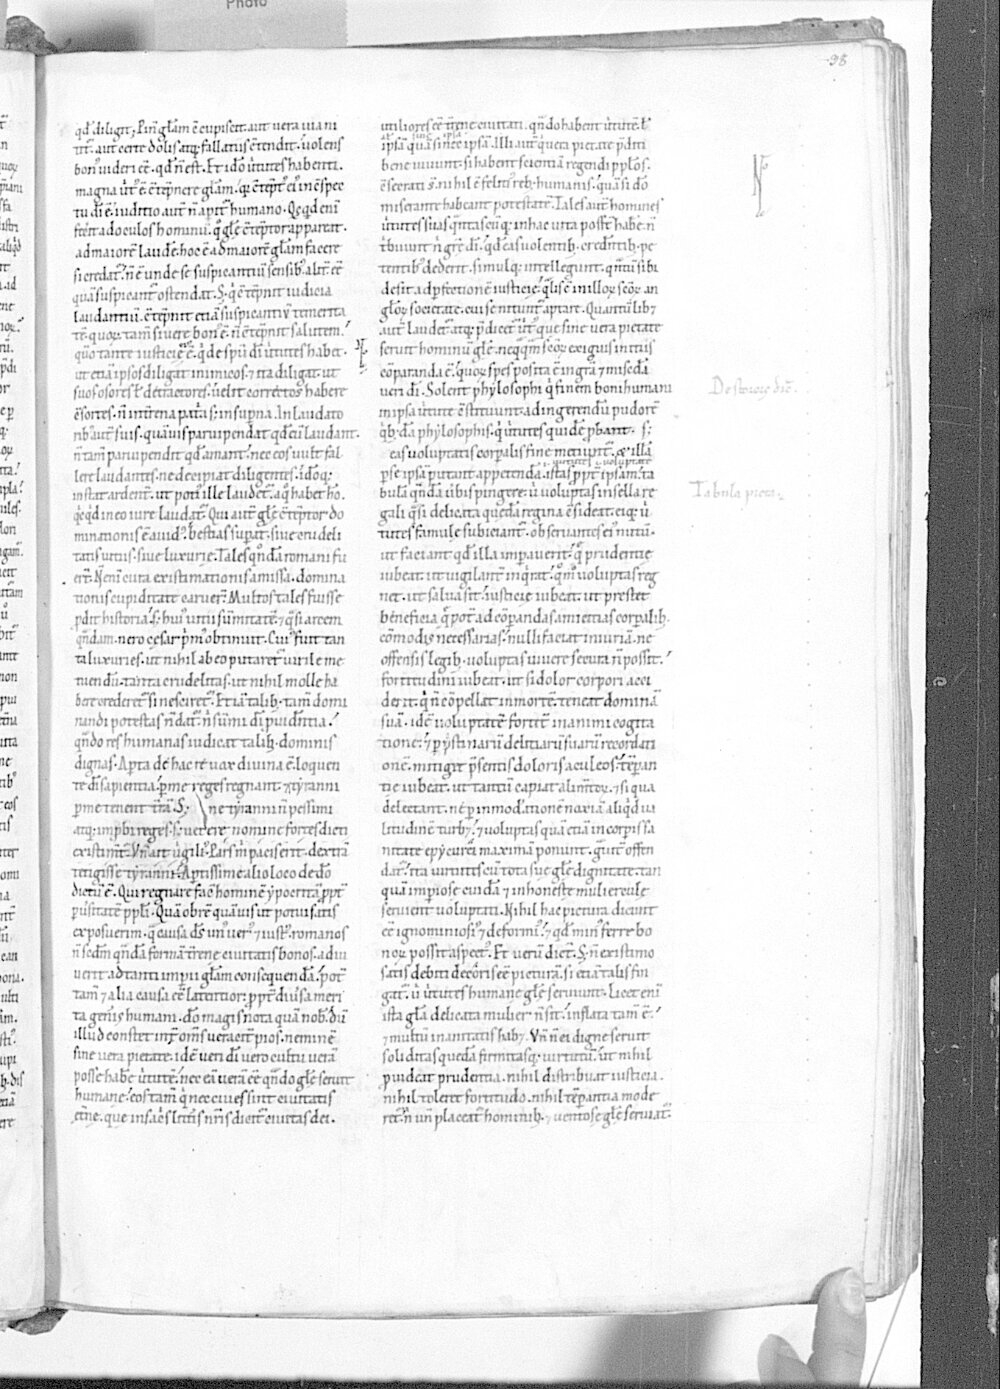 Photo
98
qd̄ diligit, P̄ırı gl̄am ē cupiscit. aut uera uia ni
tit̄. aut certe dolis atq; fallatiis c̄tendit. uolens
bon' uideri eē. qd̄ n̄ est. Et ido ūtutes habenti.
magna ūt' ē. c̄tēpnere gl̄am. q̄ c̄tēpt' ei' in c̄spec
tu dī ē. iuditio aut̄ n̄ apit̄ humano. Qcqd eni
fec̄it ad oculos hominū. q̄ gl̄e c̄tēptor appareat.
ad maiorē laudē. hoc ē ad maiorē gl̄am facere
si credat̄. n̄ ē unde se suspicantiū sensib' alit̄ eē
quā suspicant̄ ostendat. S; q̄ c̄tēpnit iudicia
laudantiū. c̄tēpnit etiā suspicantiū temerita
tē. quoꝝ tam̄ si uere bon' ē. n̄ c̄tēpnit salutem.
qm̄ tante iusticie ē. q̄ de sp̄u dī ūtutes habet.
ut etiā ipsos diligat inimicos. ⁊ ita diligat ut
suos osores ł detractores. uelit correctos habere
c̄sortes. n̄ in t̄rena patā s; in sup̄na. In laudato
rib' aut̄ suis. quāuis paruipendat qd̄ eū laudant.
n̄ tam̄ paruipendit qd̄ amant. nec eos uult fal
lere laudantes. ne decipiat diligentes. ido q;
instat ardent̄. ut poti' ille laudet̄. a q̄ habet ho.
qcqd in eo iure laudat̄. Qui aut̄ gl̄e c̄tēptor do
minationis ē auid'. bestias sup̄at. siue crudeli
tatis uitiis. siue luxurie. Tales qd̄ā romani fu
ert̄. N̄ eni cura existimationis amissa. domina
tionis cupiditate caruer̄. Multos tales fuisse
p̄dit historia. S; hui' uitii sūmitatē. ⁊ q̄si arcem
qn̄dam. nero cesar p̄m' obtinuit. Cui' fuit tan
ta luxuries. ut nihil ab eo putaret̄ uirile me
tuendū. tanta crudelitas. ut nihil molle ha
bere crederet̄ si nesciret̄. Etiā talib; tam̄ domi
nandi potestas n̄ dat̄. n̄ sūmi dī p̄uidentia.
qn̄do res humanas iudicat talib; dominis
dignas. Apta de hac re uox diuina ē. loquen
te dī sapientia. p̄ me reges regnant. ⁊ tyranni
p̄ me tenent t̄rā. S; ne tyranni n̄ pessimi
atq; imp̄bi reges. s; uetere nomine fortes dicti
existimēt̄. Vn̄ ait ūgili'. Pars m̄ pacis erit. dextrā
tetigisse tyranni. Aptissime alio loco de dō
dictū ē. Qui regnare facē hominē ypocritā pp̄t
p̄usitatē pp̄li. Quā obrē quāuis ut potui satis
exposuerim. q̄ causa ds̄ un' uer' ⁊ iust' romanos
n̄ sc̄dm qn̄dā formā t̄rene ciuitatis bonos. adiu
uerit ad tanti imp̄ii gl̄am consequendā. pot̄
tam̄ ⁊ alia causa eē latentior. pp̄t diūsa meri
ta gen̄is humani. dō magis nota quā nob'. dū
illud constet int̄ om̄s ueracit̄ pios. neminē
sine uera pietate. idē ueri dī uero cultu uerā
posse habē ūtutē. nec eā uerā eē qn̄do gl̄e seruit
humane. eos tam̄ q̄ nec ciues sint ciuitatis
et̄ne. que in saq̄s litt̄is nr̄is dicit̄ ciuitas dei.
utiliores eē t̄rene ciuitati. qn̄do habent ūtutē ł
ipsā quā si nec ipsā. Illi aut̄ q̄ uera pietate p̄diti
bene uiuunt. si habent scientiā regendi pp̄los.
c̄secrati s̄. nihil ē felici' reb; humanis. quā si dō
miserante habeant potestatē. Tales aut̄ homines
ūtutes suas qn̄tascūq; in hac uita possē habē. n̄
tbuunt n̄ gr̄e dī. qd̄ eas uolentib; credentib; pe
tentib' dederit. simulq; intellegunt. qn̄tū sibi
desit ad p̄fectionē iusticie. q̄lis ē in illoꝝ scōꝝ an
gloꝝ societate. cui se nitunt̄ aptare. Quantū lib;
aut̄ laudet̄ atq; p̄dicet̄ ūt' que sine uera pietate
seruit hominū gl̄e. neq̄q̄m scōꝝ exiguis initiis
cōparanda ē. quoꝝ spes posita ē in gr̄a ⁊ mis̄cdā
ueri dī. Solent phylosophi q̄ finem boni humani
in ipsa ūtute c̄stituunt. ad ingerendū pudorē
q'b;dā phylosophis. q̄ ūtutes quidē p̄bant. s;
eas uoluptatis corpalis fine metiunt̄. ⁊ illā
p̄ se ipsā putant appetendā. istas pp̄t ipsam. ta
bulā qn̄dā ūbis pingere. ū uoluptas in sella re
gali q̄si delicata quedā regina c̄sideat. eiq; ū
tutes famule subiciant̄. obseruantes ei' nutū.
ut faciant qd̄ illa impauerit. q̄ prudentie
iubeat. ut uigilant̄ inq̄rat. qm̄ uoluptas reg
net. ⁊ salua sit. iusticie iubeat. ut prestet
beneficia q̄ pot̄ ad cōpandas amicitias corpalib;
cōmodis necessarias. nulli faciat iniuriā. ne
offensis legib; uoluptas uiuere secura n̄ possit.
fortitudini iubeat. ut si dolor corpori acci
derit. q̄ n̄ cōpellat in mortē. teneat dominā
suā. idē uoluptatē fortit̄ in animi cogita
tione. ⁊ p̄ p̄stinarū delitiarū suarū recordati
onē. mitiget p̄sentis doloris aculeos. tēpan
tie iubeat. ut tantū capiat alim̄toꝝ. ⁊ si qua
delectant. ne p̄ inmod̄ationē noxiā aliqd̄ ua
litudinē turb;. ⁊ uoluptas quā etiā in corpis sa
nitate epycurei maximā ponunt. gūit̄ offen
dat̄. Ita uirtutes cū tota sue gl̄e dignitate. tan
quā impiose cuidā ⁊ inhoneste muliercule
seruient uoluptati. Nihil hac pictura dicunt
eē ignominiosi' ⁊ deformi'. ⁊ qd̄ min' ferre bo
noꝝ possit aspect'. Et uerū dict̄. S; n̄ existimo
satis debiti decoris eē picturā. si etiā talis fin
gat̄. ū ūtutes humane gl̄e seruiunt. Licet eni
ista gl̄a delicata mulier n̄ sit. inflata tam̄ ē.
⁊ multū inanitatis hab;. Vn̄ n̄ ei digne seruit
soliditas quedā firmitasq; uirtutū. ut nihil
puideat prudentia. nihil distribuat iusticia.
nihil toleret fortitudo. nihil tēpantia mode
ret̄. n̄ un̄ placeat̄ hominib; ⁊ uentose gl̄e seruiat̄.
Tabula picta.